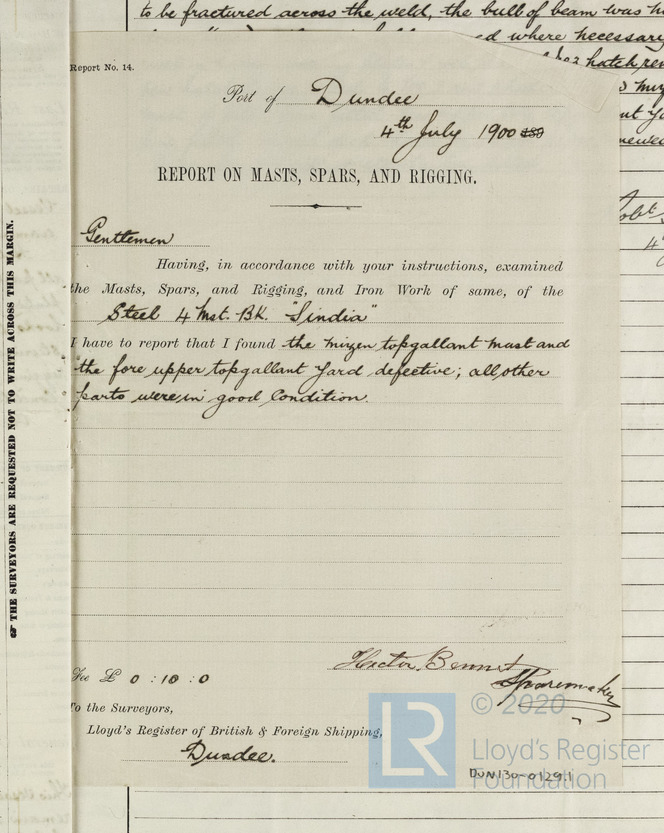 to be fractured across the weld, the bulb of beam was
where necessary
hatch
Report No. 14.
Port of Dundee
4th July 1900 189
REPORT ON MASTS, SPARS, AND RIGGING.
Gentlemen
Having, in accordance with your instructions, examined
the Masts, Spars, and Rigging, and Iron Work of same, of the
Steel 4 Mst. Bk. "Sindia"
I have to report that I found the mizen topgallant mast and
the fore upper topgallant yard defective; all other
parts were in good Condition.
Hector Bennet
Sparemaker
Fee £ 0 : 10 : 0
To the Surveyors,
Lloyd's Register of British & Foreign Shipping,
Dundee.
☞ THE SURVEYORS ARE REQUESTED NOT TO WRITE ACROSS THIS MARGIN.
LR
© 2020
Lloyd's Register
Foundation
DUN130-0129.1